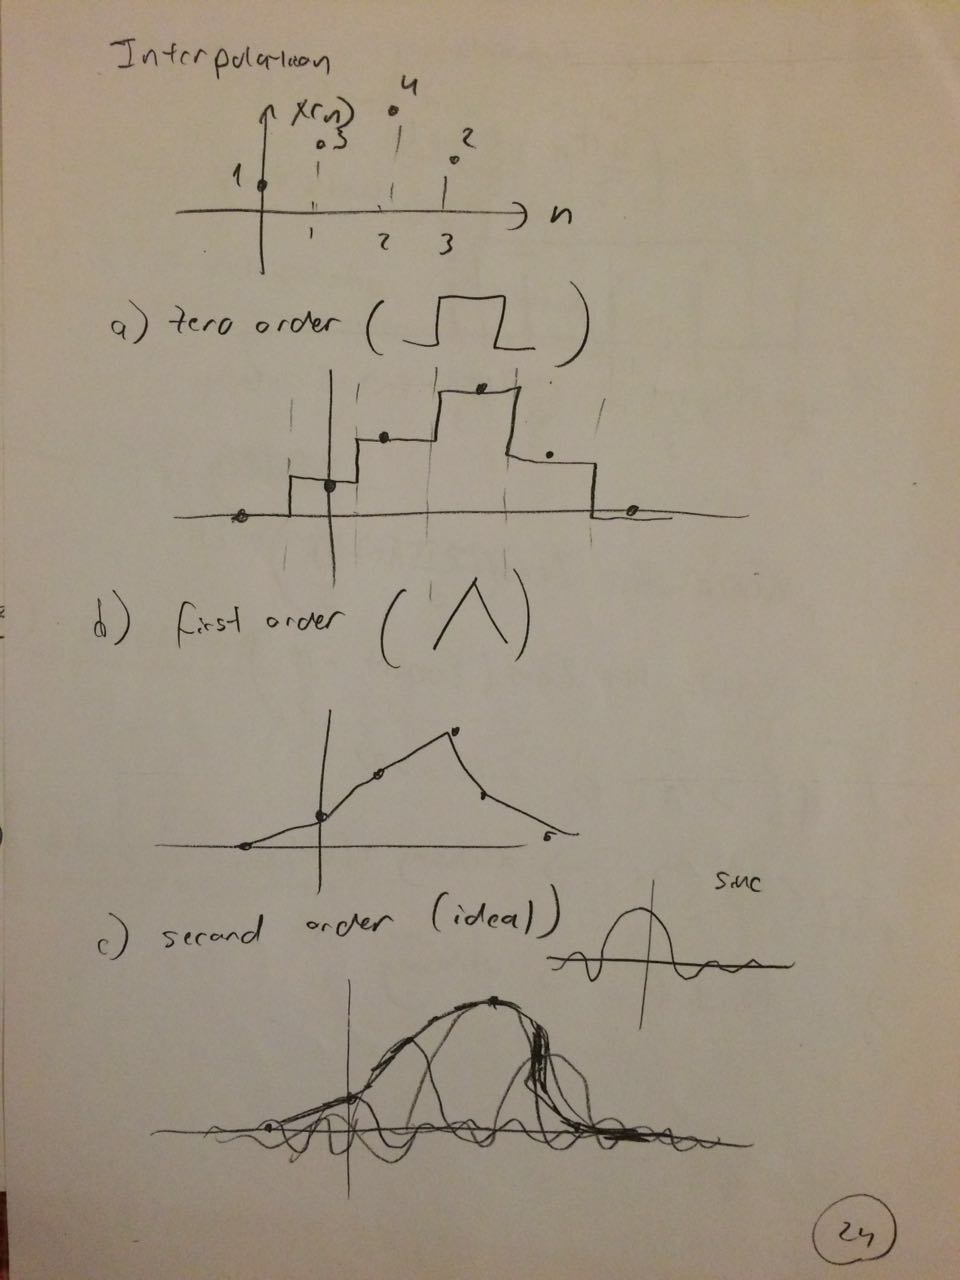 Interpolation
x(n)
4
3
2
1
n
1 2 3
a) zero order ( )
b) first order ( )
c) second order (ideal)
sinc
24